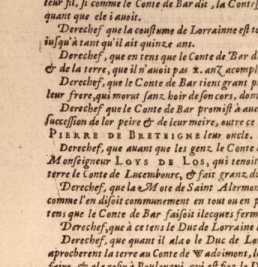 leur fil, si comme le Conte de Bar dit, la Contes
quant que ele i avoit.
Derechef que la coustume de Lorrainne est te
iusqu'à tant qu'il ait quinze ans.
Derechef, que en tens que le Conte de Bar d
& de la terre, que il n'auoit pas x. anz acompl
Derechef, que le Conte de Bar tient grant p
leur frere, qui morut sanz hoir de son cors, don
Derechef que le Conte de Bar promist à aue
succession de lor peire & de leur meire, outre ce
PIERRE DE BRETEIGNE leur oncle.
Derechef, que auant que les genz le Conte d
Monseigneur LOYS DE LOS, qui tenoit
terre le Conte de Lucembourc, & fait granz d
Derechef, que la Mote de Saint Alermon
comme l'en disoit communement en tout ou en p
tens que le Conte de Bar faisoit ilecques ferme
Derechef, que à ce tens le Duc de Lorraine
Derechef, que quant il ala o le Duc de Lo
aprocherent la terre au Conte de Wadoimons, l